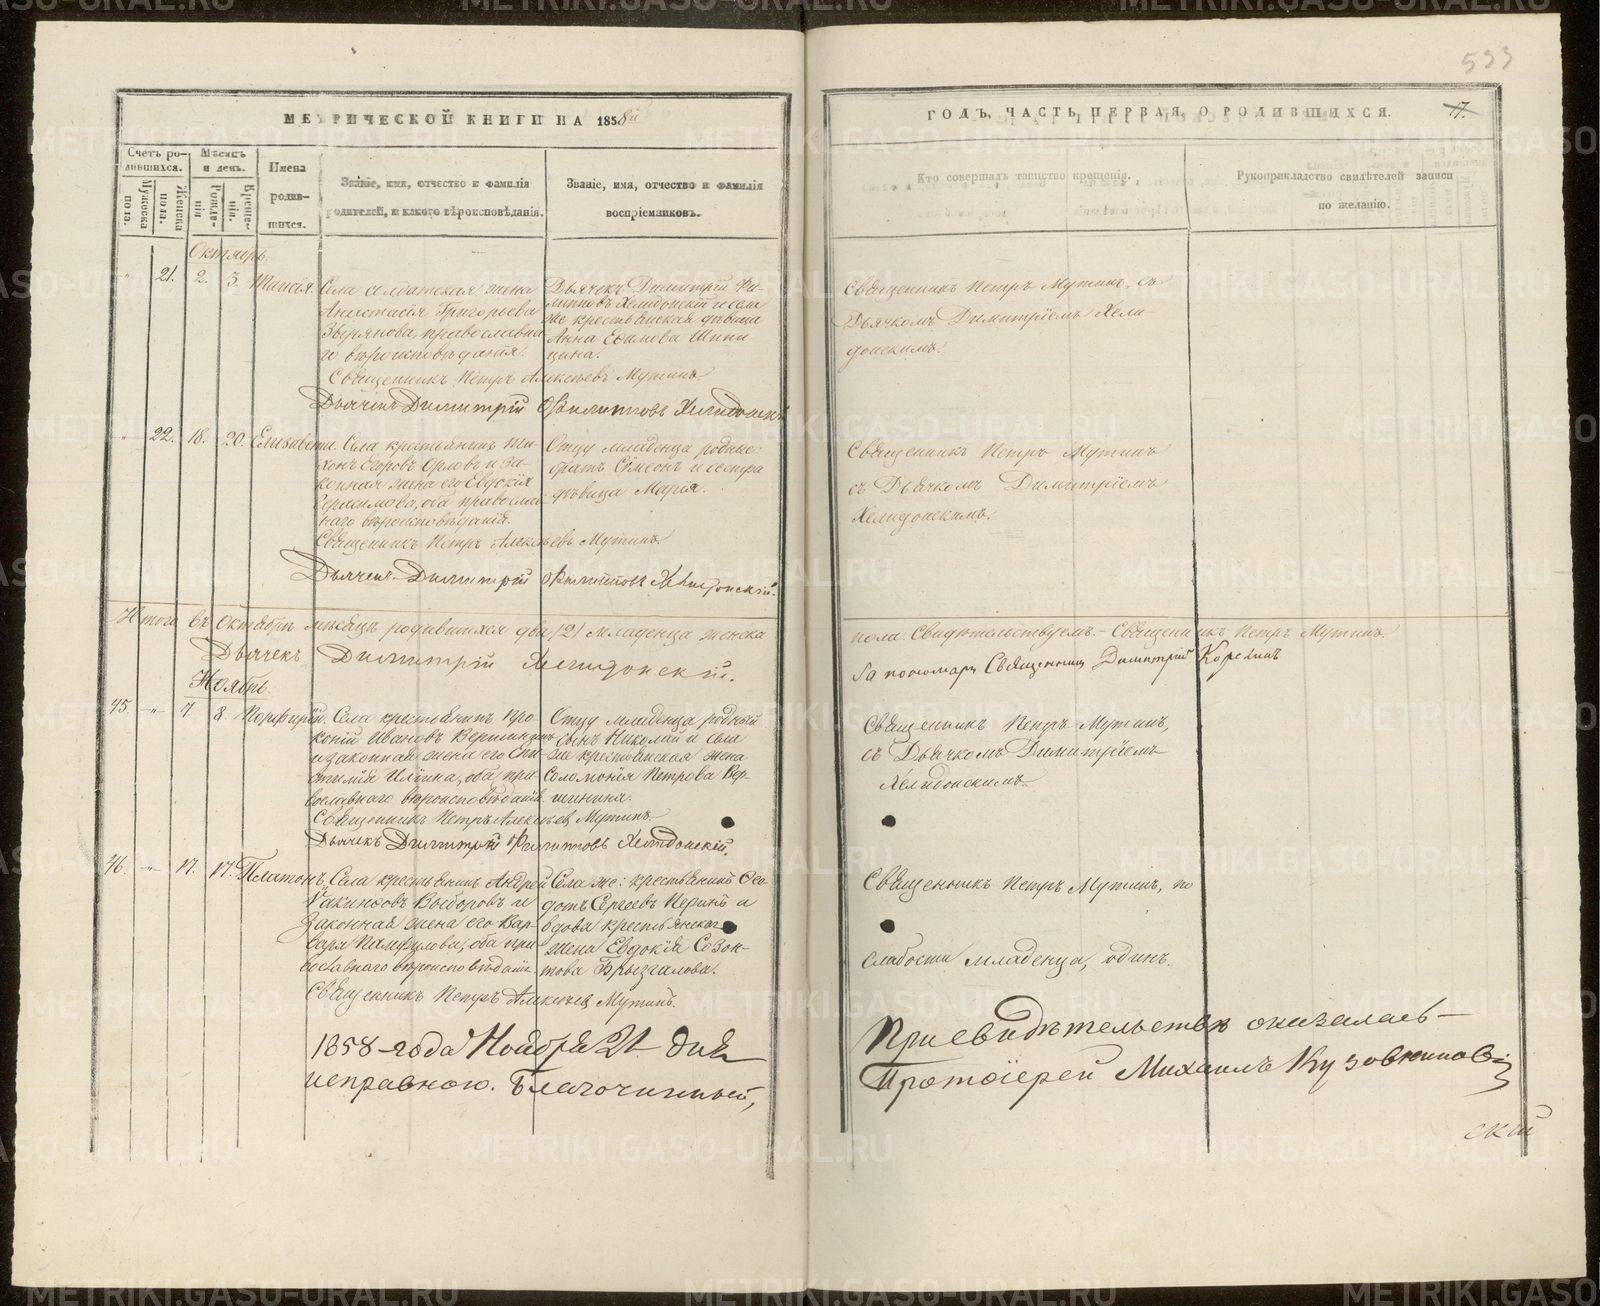 533
МЕТРИЧЕСКОЙ КНИГИ НА 1858й
ГОДЪ, ЧАСТЬ ПЕРВАЯ, О РОДИВШИХСЯ.
17.
Счетъ ро-
дившихся.
Мужеска
пола.
Женска
пола.
Мѣсяцъ
и день.
Рожде-
нія
Креще-
нія.
Имена
родив-
шихся.
Званіе, имя, отчество и фамилія
родителей, и какого вѣроисповѣданія.
Званіе, имя, отчество и фамилія
воспріемниковъ.
Кто совершалъ таинство крещенія.
Рукоприкладство свидѣтелей записи
по желанію.
Октябрь.
21. 2. 3. Таисія.
Села солдатская жена
Анастасія Григорьева
Зырянова, православна
го вѣроисповѣданія.
Дьячекъ Димитрій Фи-
липповъ Хелидонскій и села
же крестьянская дѣвица
Анна Ефимова Шипи
цина.
Священникъ Петръ Мутинъ, съ
Дьячкомъ Димитріемъ Хели-
донскимъ.
Священникъ Петръ Алексѣевъ Мутинъ
Дьячекъ Димитрій Филипповъ Хелидонскій
22. 18. 20. Елисавета.
Села крестьянинъ Ти-
хонъ Егоровъ Орловъ и за-
конная жена его Евдокія
Герасимова, оба правосла-
наго вѣроисповѣданія.
Отцу младенца родные:
братъ Сѵмеонъ и сестра
дѣвица Марія.
Священникъ Петръ Мутинъ
съ Дьячкомъ Димитріемъ
Хелидонскимъ.
Священникъ Петръ Алексѣевъ Мутинъ.
Дьячекъ Димитрій Филипповъ Хелидонскій.
Итого въ Октябрѣ мѣсяцѣ родившихся два (2) младенца женска
пола. Свидѣтельствуемъ. Священникъ Петръ Мутинъ.
Дьячекъ Димитрій Хелидонскій.
За пономаря Священникъ Димитрій
Ноябрь.
45. -"- 7 8. Порфирій.
Села крестьянинъ Про-
копій Ивановъ Вершининъ
и законная жена его
Ильина, оба пра-
вославнаго вѣроисповѣданія.
Отцу младенца родный
сынъ Николай и села
же крестьянская жена
Соломонія Петрова Вер-
шинина.
Священникъ Петръ Мутинъ,
съ Дьячкомъ Димитріемъ
Хелидонскимъ.
Священникъ Петръ Алексѣевъ Мутинъ.
Дьячекъ Димитрій Филипповъ Хелидонскій.
46. -"- 17. 17. Платонъ.
Села крестьянинъ Андрей
и
законная жена его Вар-
вара Памфилова, оба пра-
вославнаго вѣроисповѣданія.
Села же: крестьянинъ Ѳео-
дотъ Сергѣевъ и
вдова крестьянская
жена Евдокія Созон-
това Брызгалова.
Священникъ Петръ Мутинъ, по
слабости младенца, одинъ.
Священникъ Петръ Алексѣевъ Мутинъ.
1858 года Ноября 21 дня
При свидѣтельствѣ оказалась
исправною. Благочинный,
Протоіерей Михаилъ Кузовниковъ
ский